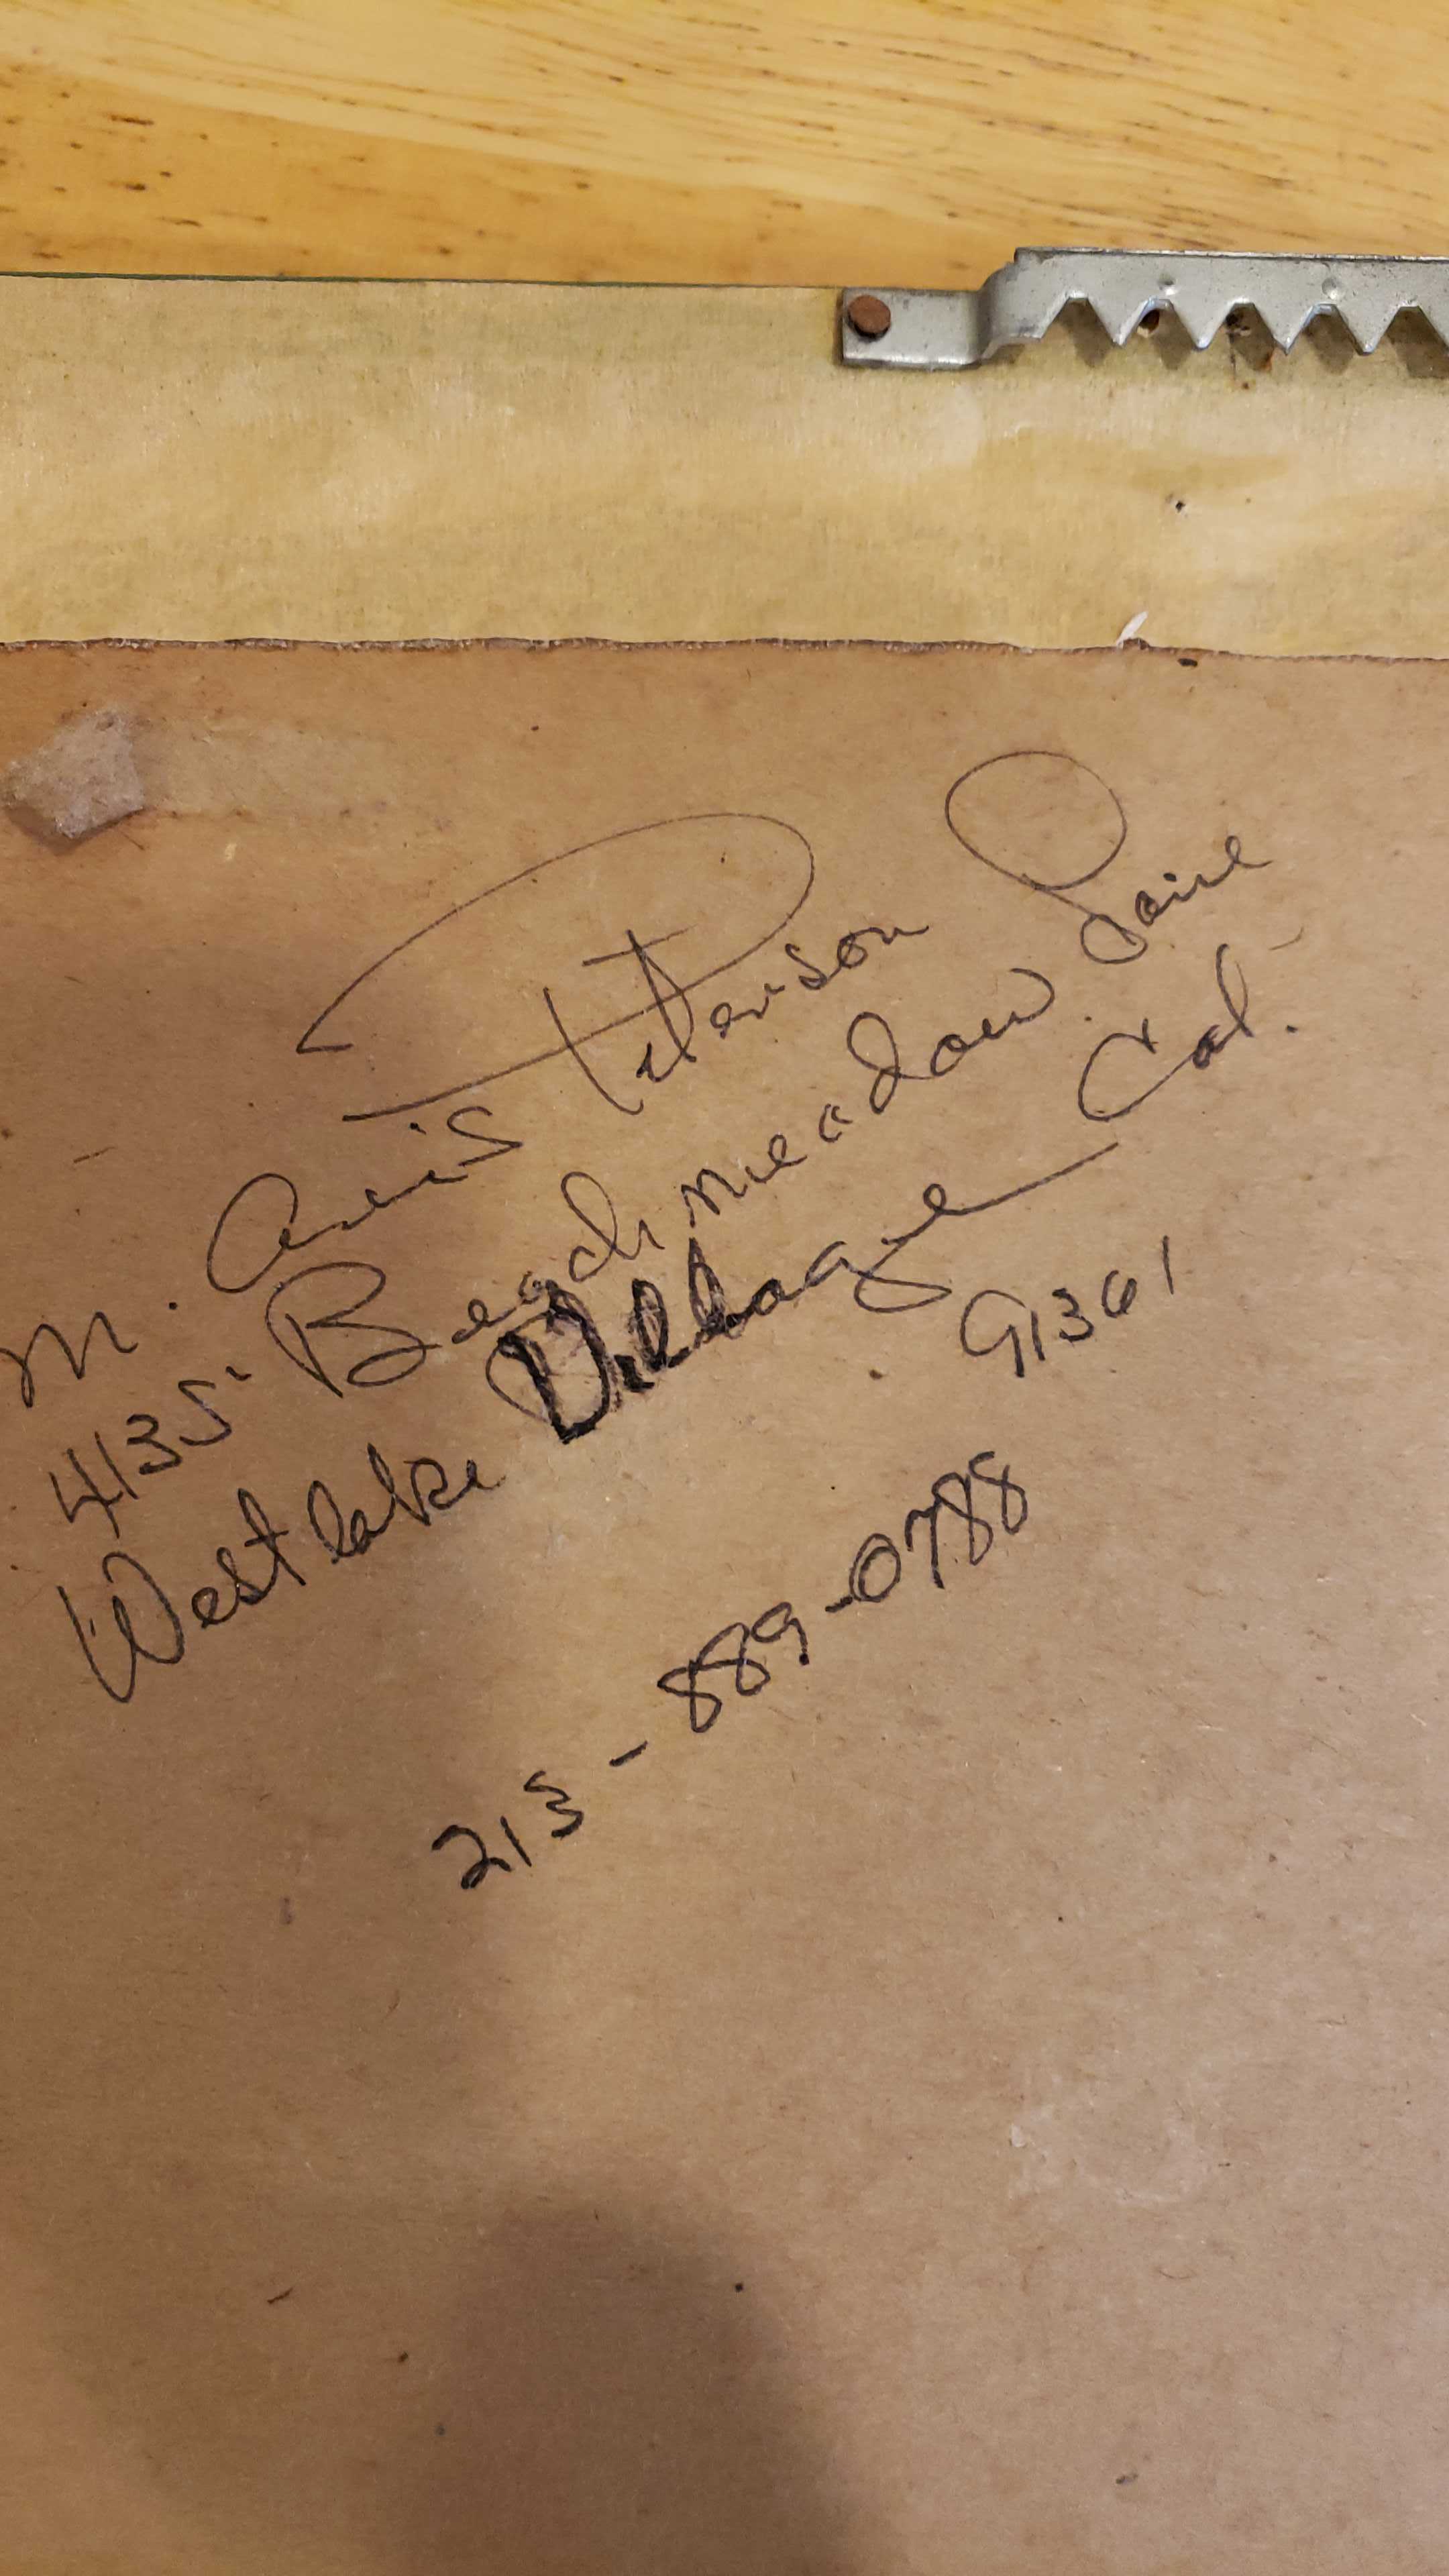 M. Avis Peterson
4135 Beachmeadow Lane
Westlake Village Cal.
91361
213-889-0788